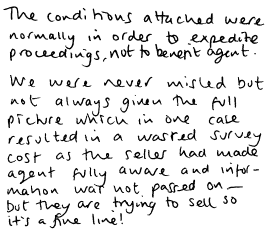 The conditions attached were
normally in order to expedite
proceedings, not to benefit agent.
We were never misled but
not always given the full
picture which in one case
resulted in a wasted survey
cost as the seller had made
agent fully aware and infor-
mation was not passed on —
but they are trying to sell so
it's a fine line!